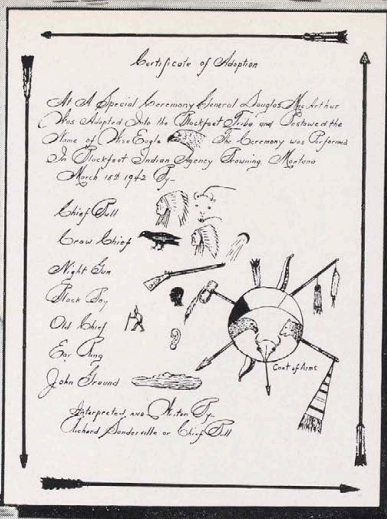 Certificate of Adoption
At A Special Ceremony General Douglas MacArthur
Was Adopted Into the Blackfeet Tribe and Bestowed the
Name of Wise Eagle The Ceremony was Performed
In Blackfeet Indian Agency Browning Montana
March 18th 1942 By-
Chief Bull
Crow Chief
Night Gun
Black Boy
Old Chief
Ear Ring
John Ground
Coat of Arms
Interpreted and By-
Richard Sanderville or Chief Bull